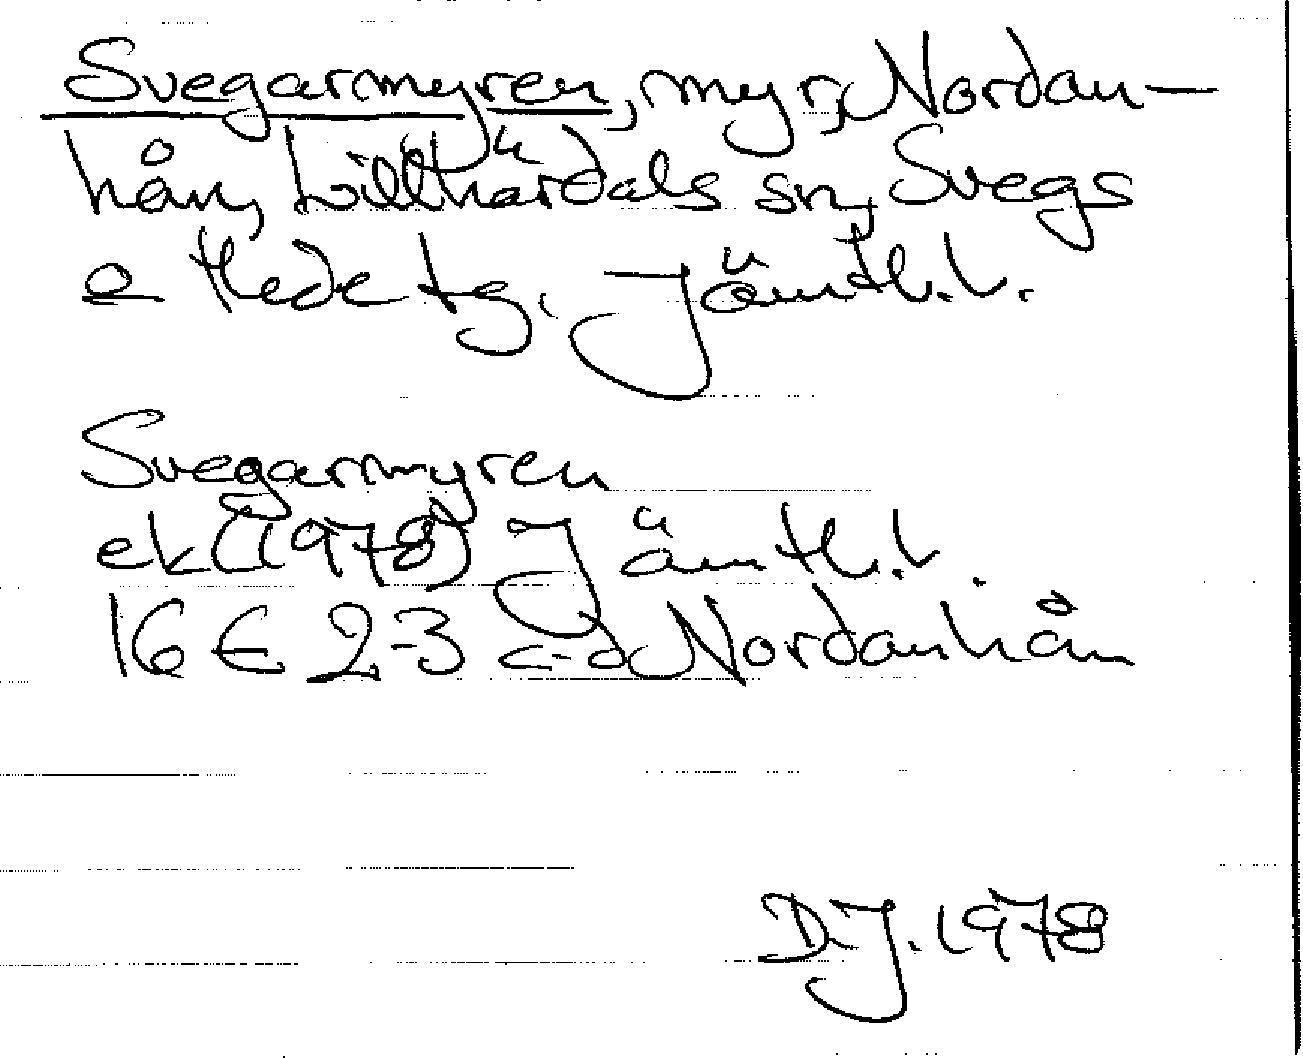 Svegarmyren, myr, Nordan-
hån, Lillhärdals sn, Svegs
o Hede tg. Jämtl.l.
Svegarmyren
ek (1978) Jämtl.l.
16 E 2-3 c-d Nordanhån
D.J. 1978